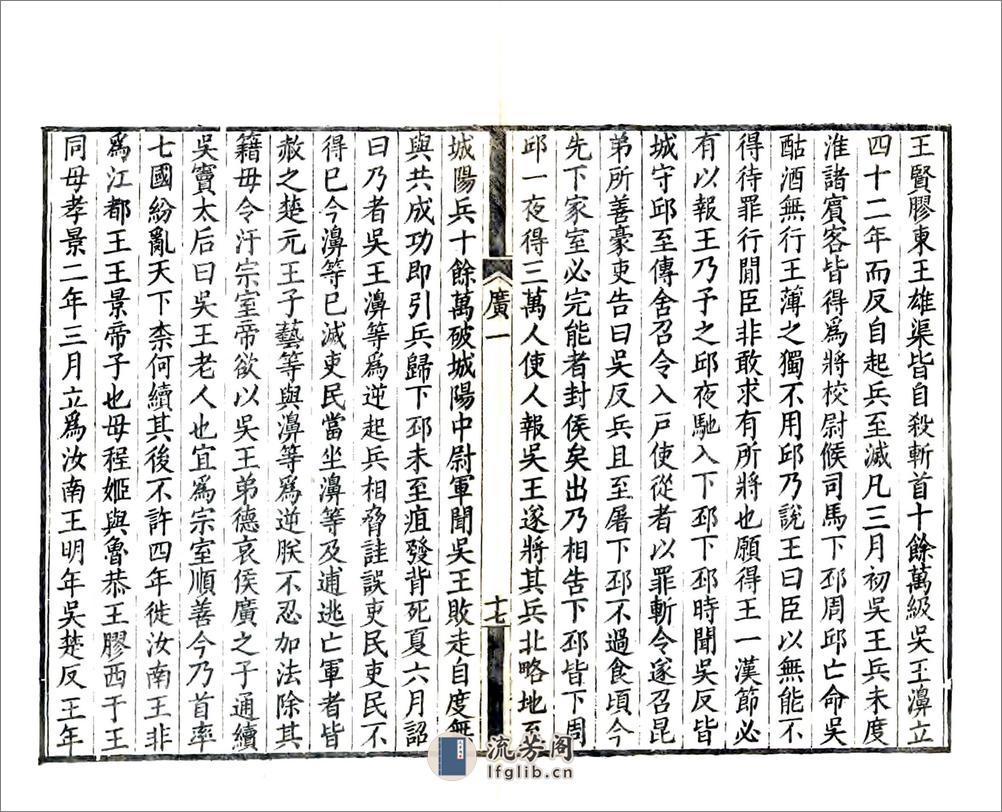 王賢膠東王雄渠皆自殺斬首十餘萬級吳王濞立
四十二年而反自起兵至滅凡三月初吳王兵未度
淮諸賓客皆得爲將校尉候司馬下邳周邱亡命吳
酤酒無行王薄之獨不用邱乃說王曰臣以無能不
得待罪行閒臣非敢求有所將也願得王一漢節必
有以報王乃予之邱夜馳入下邳下邳時聞吳反皆
城守邱至傳舍召令入戸使從者以罪斬令遂召昆
弟所善豪吏告曰吳反兵且至屠下邳不過食頃今
先下家室必完能者封侯矣出乃相告下邳皆下周
邱一夜得三萬人使人報吳王遂將其兵北略地至
廣一
十七
城陽兵十餘萬破城陽中尉軍聞吳王敗走自度無
與共成功即引兵歸下邳未至疽發背死夏六月詔
曰乃者吳王濞等爲逆起兵相脅詿誤吏民吏民不
得已今濞等已滅吏民當坐濞等及逋逃亡軍者皆
赦之楚元王子藝等與濞等爲逆朕不忍加法除其
籍毋令汙宗室帝欲以吳王弟德哀侯廣之子通續
吳竇太后曰吳王老人也宜爲宗室順善今乃首率
七國紛亂天下柰何續其後不許四年徙汝南王非
爲江都王王景帝子也母程姬與魯恭王膠西于王
同母孝景二年三月立爲汝南王明年吳楚反王年
流芳阁
lfglib.cn